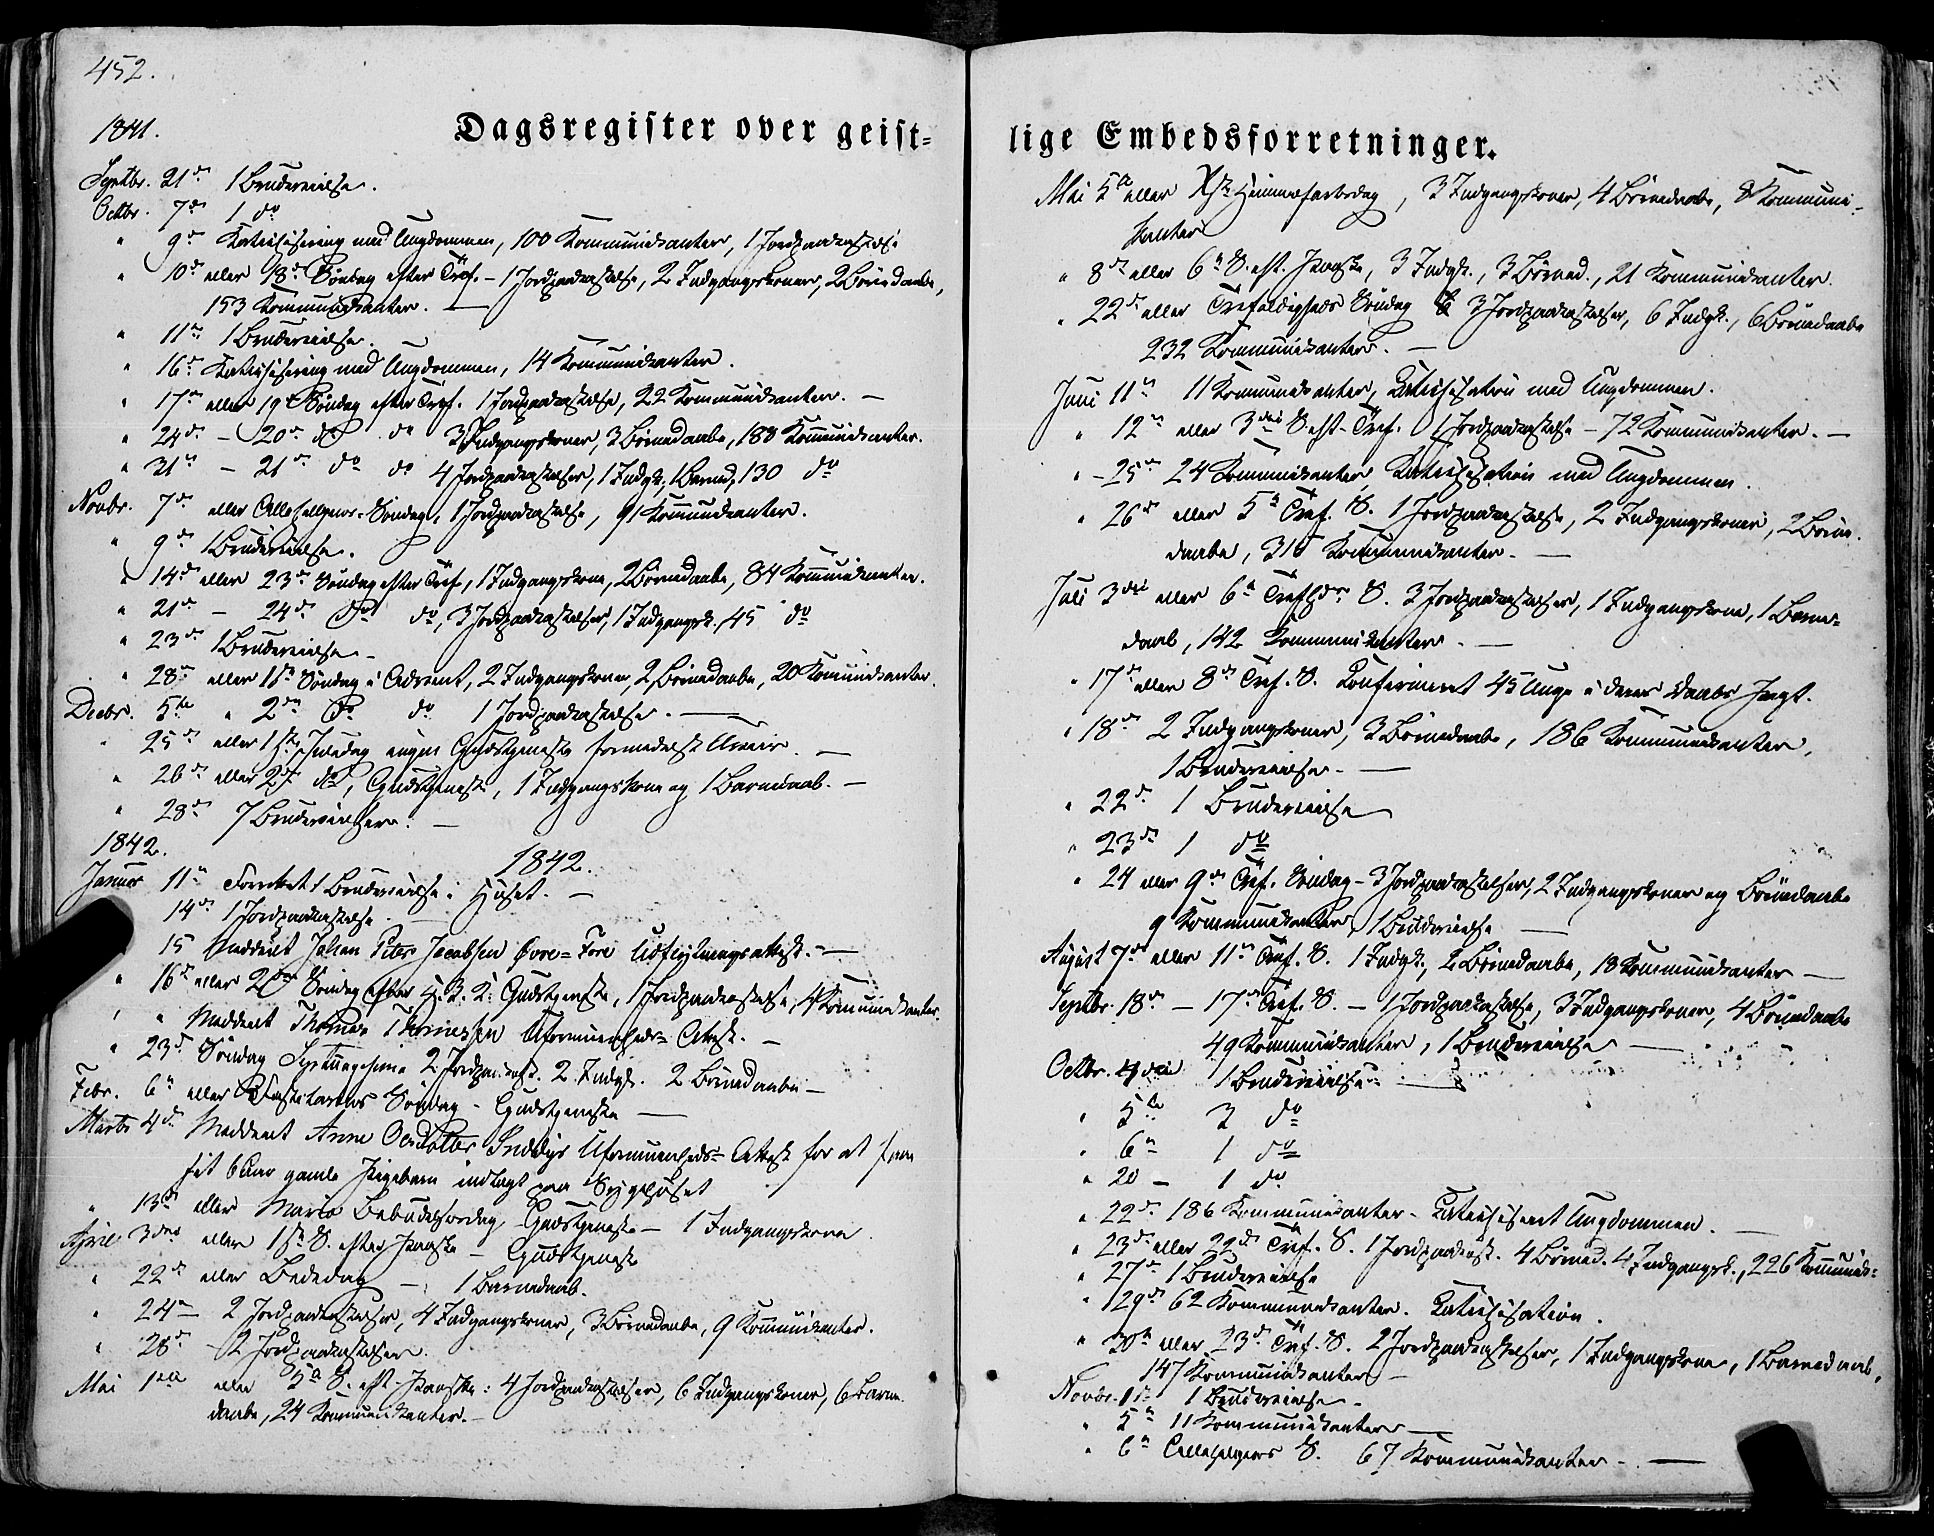 452.
1841.
Dagsregister over geist=
Septbr. 21de 1 Brudevielse.
Octbr. 7de 1 do
" 9de Katechisering med Ungdommen, 100 Kommunikanter, 1 Jordpaakastelse
" 10de eller 18de Søndag efter Tref. – 1 Jordpaakastelse, 2 Indgangskoner, 2 Børnedaabe,
153 Kommunikanter. —
" 11te 1 Brudevielse.
" 16de Katechisering med Ungdommen, 14 Kommunikanter.
" 17de eller 19de Søndag efter Tref. 1 Jordpaakastelse, 22 Kommunikanter. —
" 24de – 20de do do 3 Indgangskoner, 3 Børnedaabe, 188 Kommunikanter.
" 31te – 21de do do 4 Jordpaakastelser, 1 Indgk., 1 Barned., 130 do
Novbr. 7de eller Allehelgens-Søndag, 1 Jordpaakastelse, 91 Kommunikanter.
" 9de 1 Brudevielse.
" 14de eller 23de Søndag efter Tref., 1 Indgangskone, 2 Børnedaabe, 84 Kommunikanter.
" 21de – 24de do do, 3 Jordpaakastelser, 1 Indgangsk., 45 do
" 23de 1 Brudevielse –
" 28de eller 1ste Søndag i Advent, 2 Indgangskoner, 2 Børnedaabe, 20 Kommunikanter.
Decbr. 5te " 2den do do 1 Jordpaakastelse. —
" 25de eller 1ste Juledag ingen Gudstjeneste formedelst Uveir. —
" 26de eller 2den do, Gudstjeneste, 1 Indgangskone og 1 Barnedaab. —
" 28de 7 Brudevielser. —
1842. 1842.
Januar 11te Forrettet 1 Brudevielse i Huset. —
14de 1 Jordpaakastelse.
15 Meddeelt Johan Peter Jacobsen Øvre=Fore Udflytningsattest. —
" 16de eller 2den Søndag efter H. 3 K. Gudstjeneste, 1 Jordpaakastelse, 4 Kommunikanter.
" " Meddeelt Thomas Thomessen Uformuenheds=Attest. –
" 23de Søndag Septuagesima 2 Jordpaakast. 2 Indgk. 2 Børnedaabe –
Febr. 6te eller Fastelavns Søndag – Gudstjeneste —
Marts 4de Meddeelt Anne Uformuenheds=Attest for at faae
sit 6 Aar gamle Pigebarn indlagt paa Sygehuset
" 13de eller Mariæ Bebudelsesdag, Gudstjeneste – 1 Indgangskone.
April 3die eller 1ste S. efter Paaske – Gudstjeneste
" 22de eller Bededag – 1 Barnedaab.
" 24de – 2 Jordpaakastelser, 4 Indgangskoner, 3 Børnedaabe, 9 Kommunikanter.
" 28de – 2 Jordpaakastelser.
Mai 1ste eller 5te S. eft. Paaske: 4 Jordpaakastelser, 6 Indgangskoner, 6 Barne
daabe, 24 Kommunikanter. –
lige Embedsforretninger.
Mai 5te eller Xsti Himmelfartsdag, 3 Indgangskoner, 4 Børnedaabe, 8 Kommuni-
kanter
" 8de eller 6te S. eft. Paaske, 3 Indgk., 3 Børned., 21 Kommunikanter.
" 22de eller Trefoldigheds Søndag 3 Jordpaakastelser, 6 Indgk., 6 Børnedaabe
232 Kommunikanter. —
Juni 11te 11 Kommunikanter, Katechisation med Ungdommen.
" 12te eller 3die S. eft. Tref. 1 Jordpaakastelse – 72 Kommunikanter. —
" – 25de 24 Kommunikanter Katechisation med Ungdommen.
" 26de eller 5te Tref. S. 1 Jordpaakastelse, 2 Indgangskoner, 2 Børne-
daabe, 316 Kommunikanter. —
Juli 3die eller 6te Trefhds. S. 3 Jordpaakastelser, 1 Indgangskone, 1 Barne=
daab, 142 Kommunikanter. —
" 17de eller 8de Tref. S. Konfirmeret 45 Unge i deres Daabs Pagt.
" 18de 2 Indgangskoner, 3 Børnedaabe, 186 Kommunikanter,
1 Brudevielse. —
" 22de 1 Brudevielse
" 23de 1 do
" 24 eller 9de Tref. Søndag – 3 Jordpaakastelser, 2 Indgangskoner og Børnedaabe
9 Kommunikanter, 1 Brudevielse —
August 7de eller 11te Tref. S. 1 Indgk., 2 Børnedaabe, 18 Kommunikanter —
Septbr. 18de – 17de Tref. S. – 1 Jordpaakastelse, 3 Indgangskoner, 4 Børnedaabe
49 Kommunikanter, 1 Brudevielse —
Octbr. 4de 1 Brudevielse —
" 5te 3 do
" 6te 1 do
" 20 – 1 do
" 22de 186 Kommunikanter – Katechiseret Ungdommen. —
" 23de eller 22de Tref. S. 1 Jordpaakast. 4 Børned. 4 Indgangsk., 226 Kommunik=
" 27de 1 Brudevielse
" 29de 62 Kommunikanter. Katechisation.
" 30te eller 23de Tref. S. 2 Jordpaakastelser, 1 Indgangskone, 1 Barnedaab,
147 Kommunikanter –
Novbr. 1ste 1 Brudevielse –
" 5te 11 Kommunikanter —
" 6te Allehelgens S. 67 Kommunikanter – —